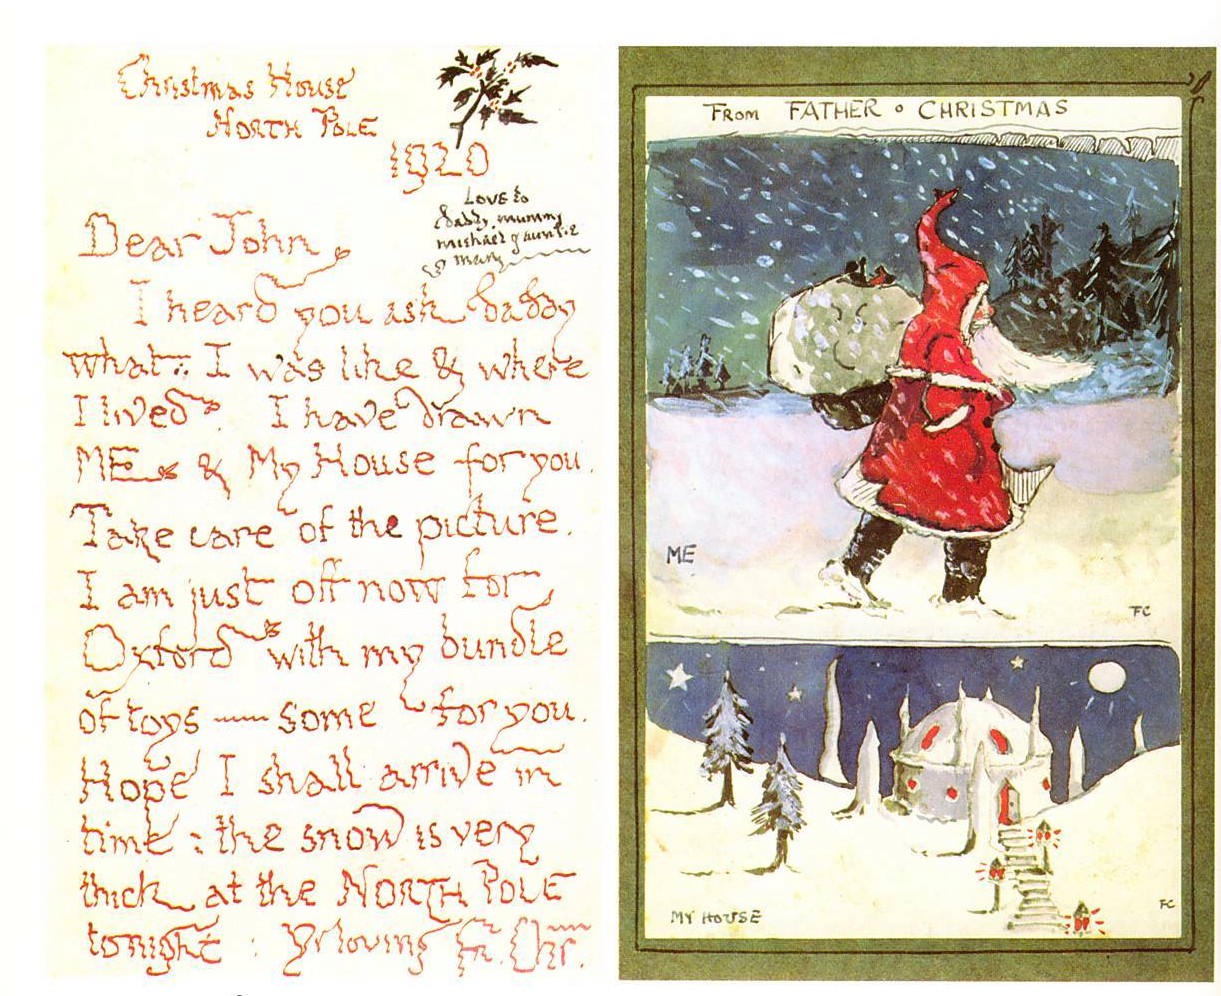 Christmas House
NORTH POLE
1920
Love to
daddy, mummy
michael & auntie
mary
Dear John
I heard you ask daddy
what I was like & where
I lived. I have drawn
ME & My House for you.
Take care of the picture.
I am just off now for
Oxford with my bundle
of toys — some for you.
Hope I shall arrive in
time : the snow is very
thick at the NORTH POLE
tonight : Yr loving Fr. Chr.
FROM FATHER • CHRISTMAS
ME
FC
MY HOUSE
FC